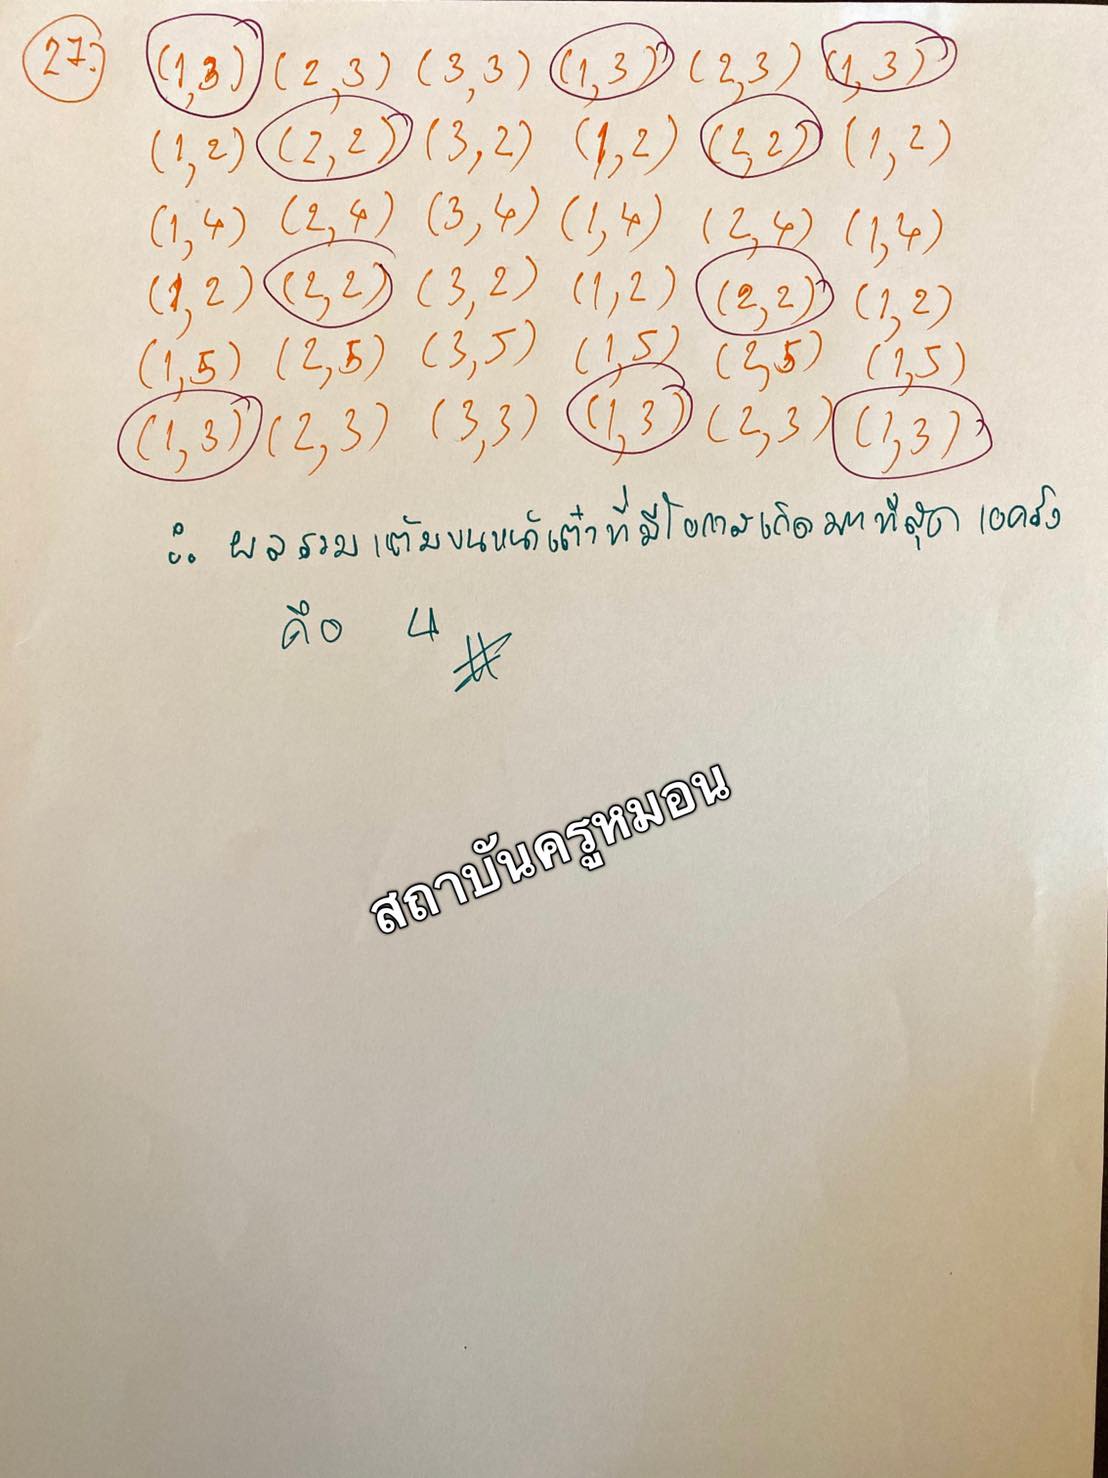 27. (1,3) (2,3) (3,3) (1,3) (2,3) (1,3)
(1,2) (2,2) (3,2) (1,2) (2,2) (1,2)
(1,4) (2,4) (3,4) (1,4) (2,4) (1,4)
(1,2) (2,2) (3,2) (1,2) (2,2) (1,2)
(1,5) (2,5) (3,5) (1,5) (2,5) (1,5)
(1,3) (2,3) (3,3) (1,3) (2,3) (1,3)
∴ ผลรวมแต้มบนหน้าเต๋าที่มีโอกาสเกิดมากที่สุด 10ครั้ง
คือ 4 #
สถาบันครูหมอน